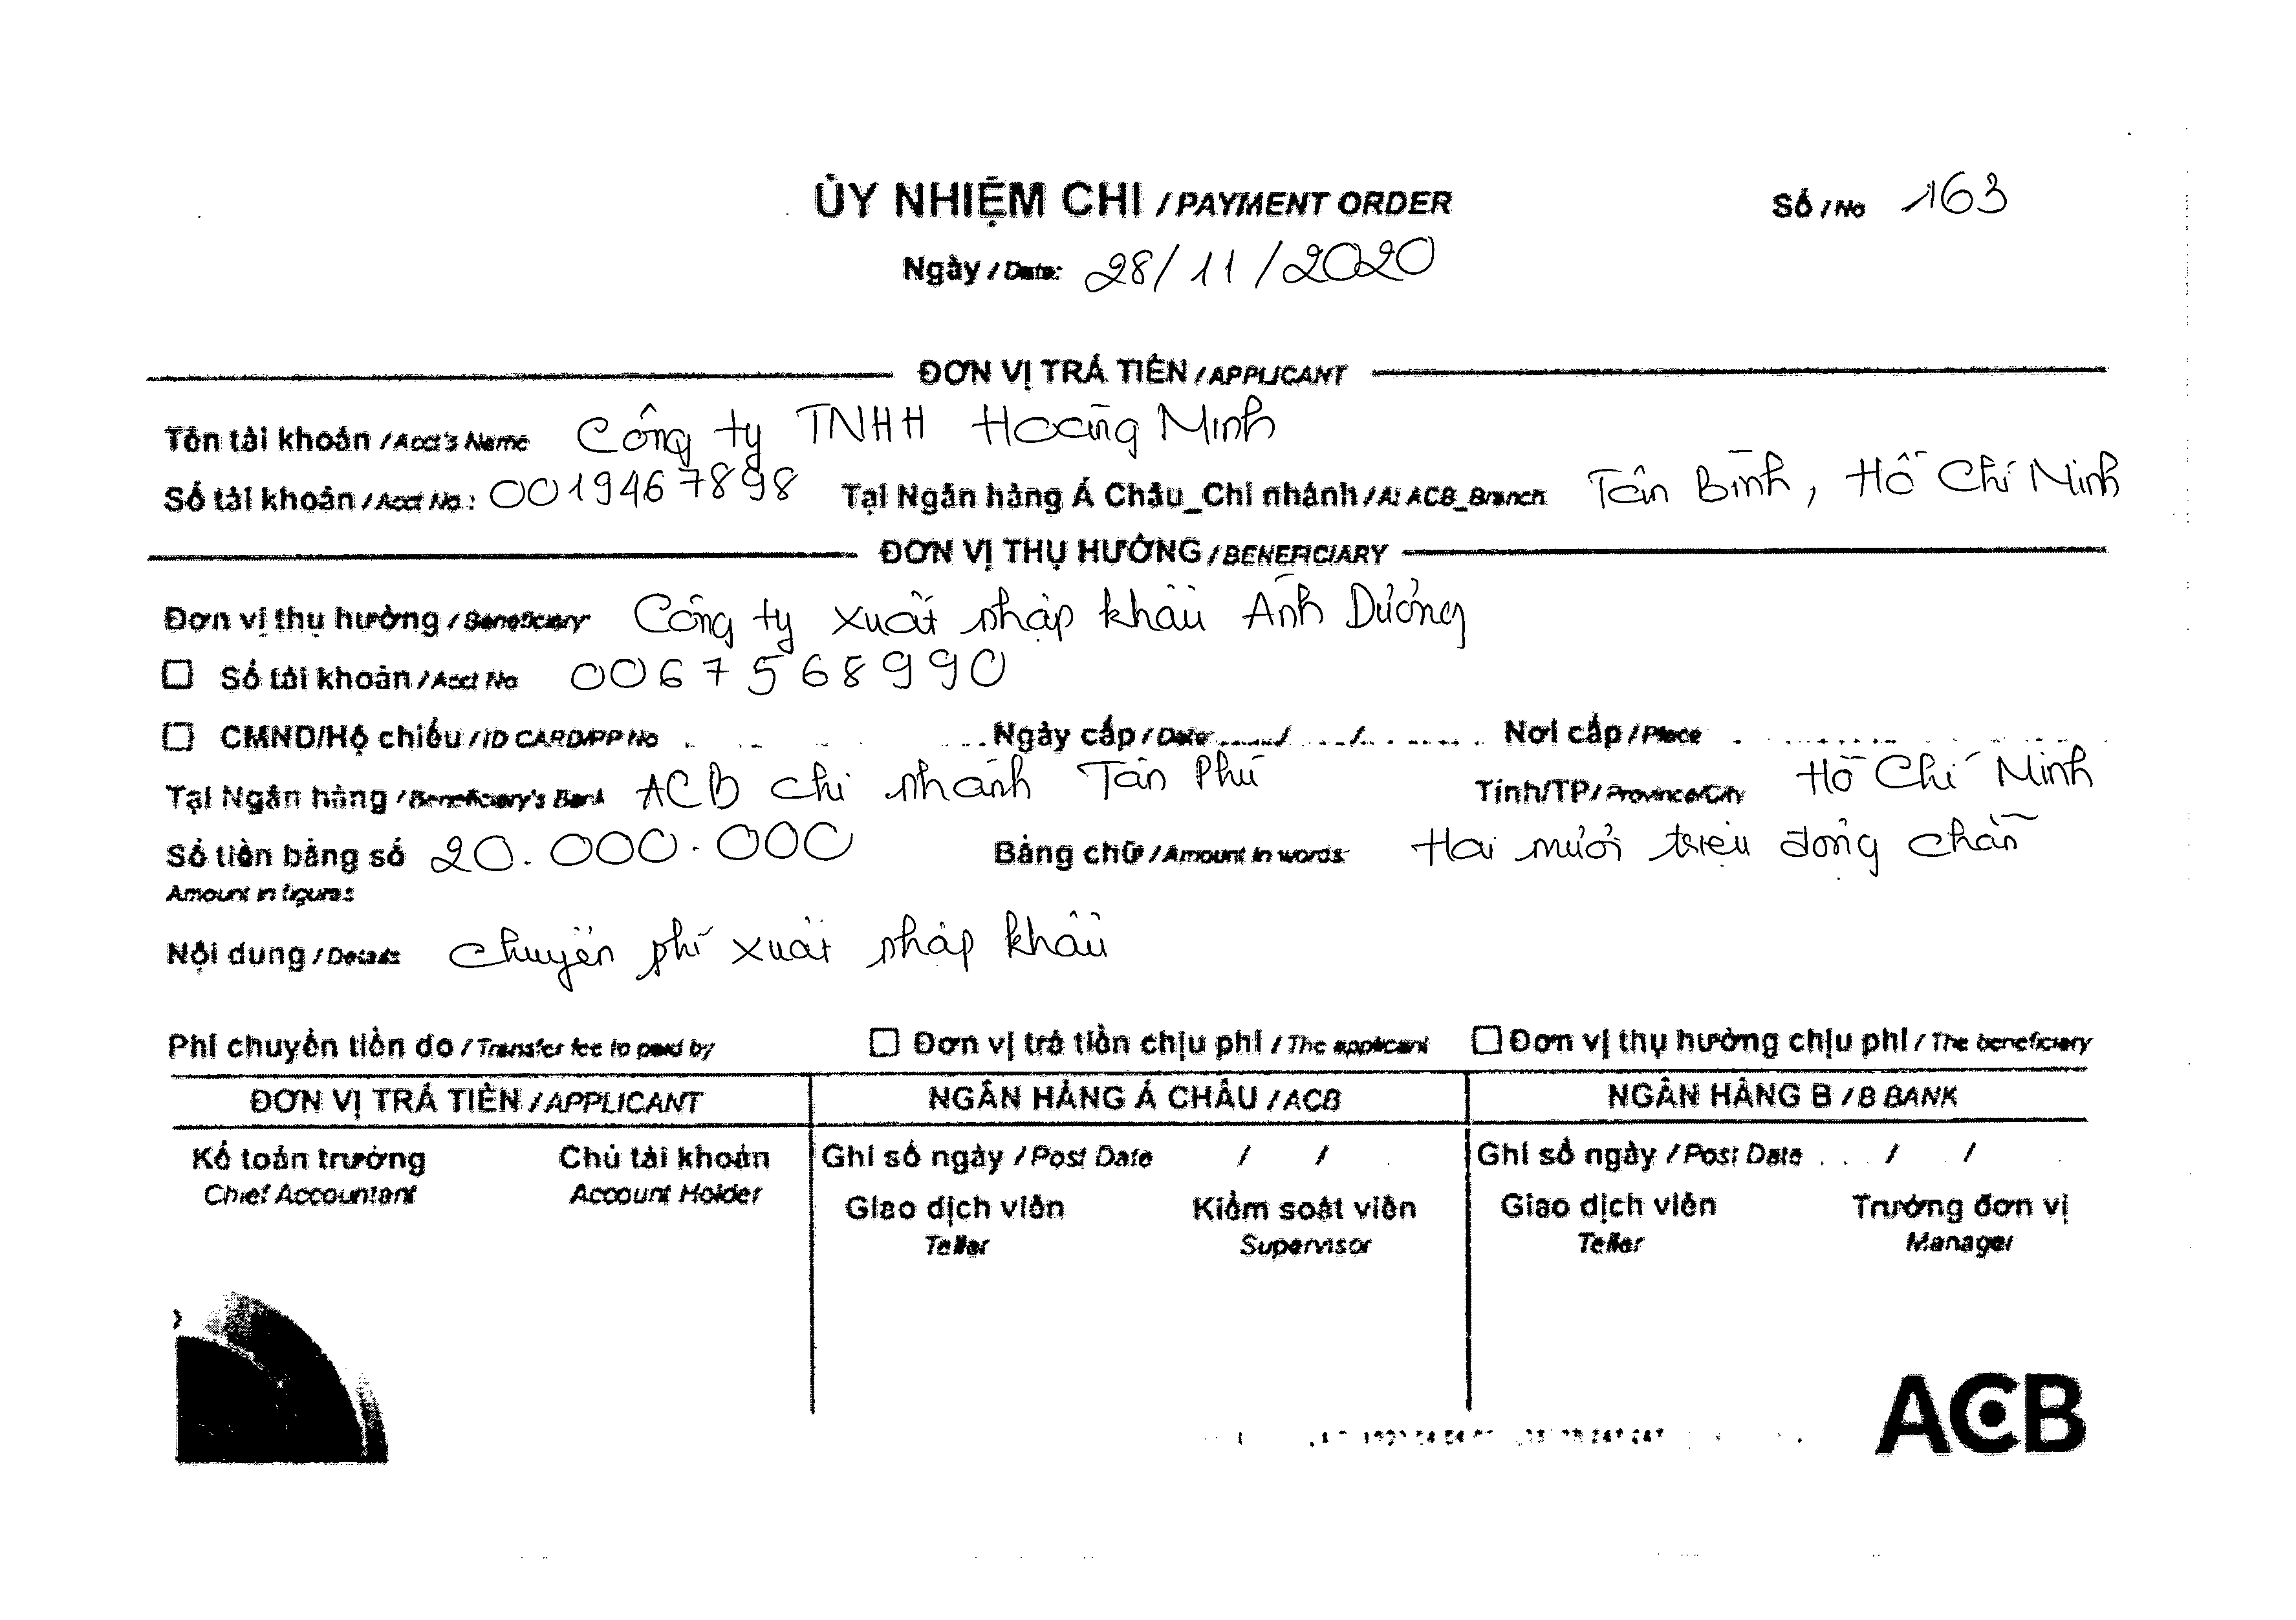 ỦY NHIỆM CHI / PAYMENT ORDER Số / No 163
Ngày / Date: 28/11/2020
ĐƠN VỊ TRẢ TIỀN / APPLICANT
Tên tài khoản / Acct's Name Công ty TNHH Hoàng Minh
Số tài khoản / Acct No.: 0019467898 Tại Ngân hàng Á Châu_Chi nhánh / At ACB_Branch Tân Bình, Hồ Chí Minh
ĐƠN VỊ THỤ HƯỞNG / BENEFICIARY
Đơn vị thụ hưởng / Beneficiary Công ty xuất nhập khẩu Ánh Dương
☐ Số tài khoản / Acct No 0067568990
☐ CMND/Hộ chiếu / ID CARD/PP No Ngày cấp / Date / / Nơi cấp / Place
Tại Ngân hàng / Beneficiary's Bank ACB chi nhánh Tân Phú Tỉnh/TP / Province/City Hồ Chí Minh
Số tiền bằng số 20.000.000 Bằng chữ / Amount in words Hai mươi triệu đồng chẵn
Amount in figures
Nội dung / Details chuyển phí xuất nhập khẩu
Phí chuyển tiền do / Transfer fee to paid by ☐ Đơn vị trả tiền chịu phí / The applicant ☐ Đơn vị thụ hưởng chịu phí / The beneficiary
ĐƠN VỊ TRẢ TIỀN / APPLICANT NGÂN HÀNG Á CHÂU / ACB NGÂN HÀNG B / B BANK
Kế toán trưởng Chủ tài khoản Ghi sổ ngày / Post Date / / Ghi sổ ngày / Post Date / /
Chief Accountant Account Holder Giao dịch viên Kiểm soát viên Giao dịch viên Trưởng đơn vị
Teller Supervisor Teller Manager
ACB